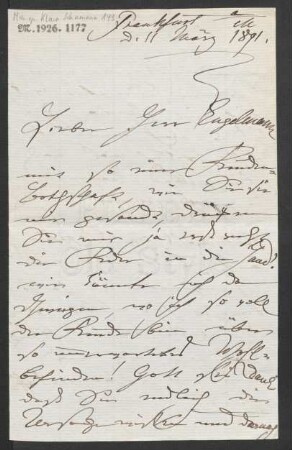 M. 1926. 1177
Frankfurt a/M
d. 11 März 1891.
Lieber Herr Engelmann
mit so einer Freuden-
bothschaft, wie Sie sie
mir gesandt, drücken
Sie mir ja recht
die Feder in die Hand!
wie könnte ich da
schweigen, wo ich so voll
der Freude bin über
so unerwartetes Wohl-
befinden! Gott sei Dank
daß Sie endlich den
Versuch und darauf